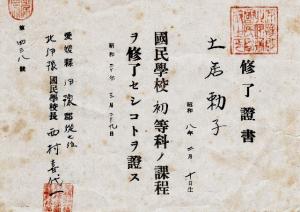 修了證書
土居勅子
昭和八年二月十日生
國民學校初等科ノ課程
ヲ修了セシコトヲ證ス
昭和二十年三月二十九日
愛媛縣伊豫郡
北伊豫國民學校長 西村喜代一
第四三八號